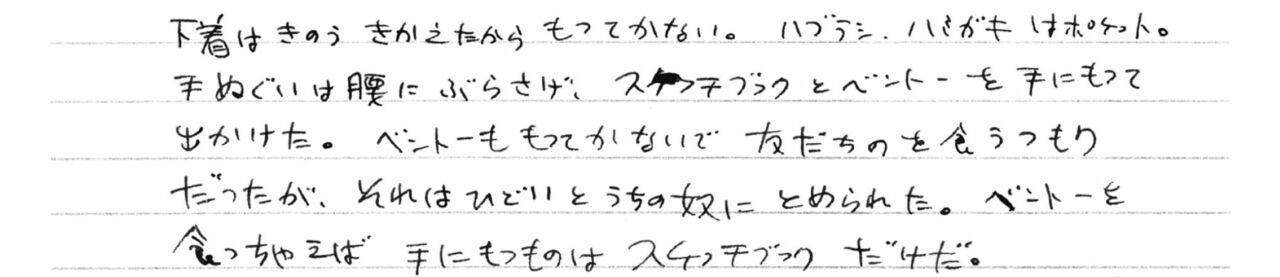 下着はきのうきかえたからもってかない。ハブラシ、ハミガキはポケット。
手ぬぐいは腰にぶらさげ、スケッチブックとベントーを手にもって
出かけた。ベントーももってかないで友だちのを食うつもり
だったが、それはひどいとうちの奴にとめられた。ベントーを
食っちゃえば手にもつものはスケッチブックだけだ。